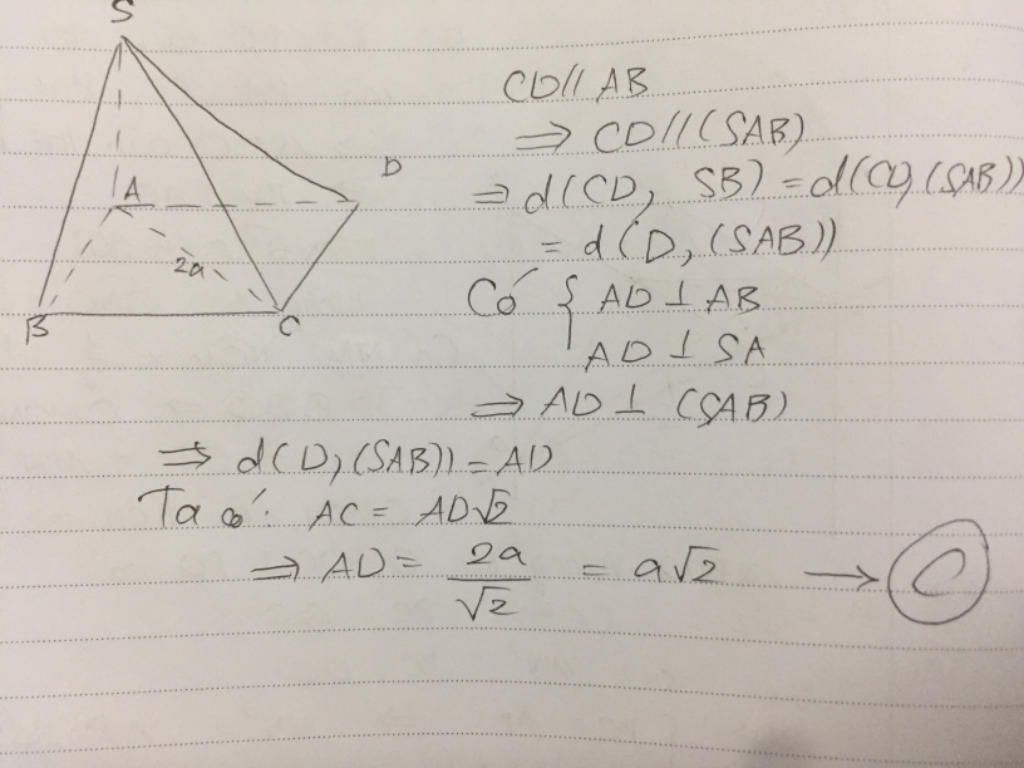 S
A
D
2a
B
C
CD // AB
⇒ CD // (SAB)
⇒ d(CD, SB) = d(CD, (SAB))
= d(D, (SAB))
Có { AD ⊥ AB
AD ⊥ SA
⇒ AD ⊥ (SAB)
⇒ d(D, (SAB)) = AD
Ta có: AC = AD√2
⇒ AD = 2a/√2 = a√2 → C